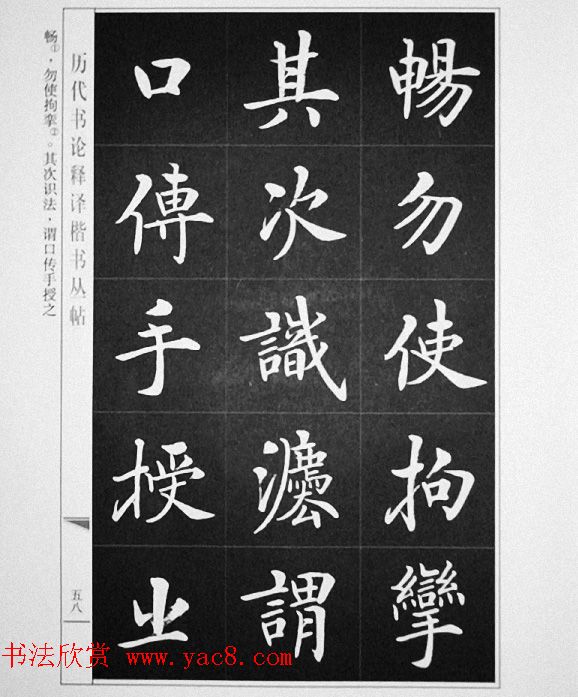 暢勿使拘攣
其次識灋謂
口傳手授之
历代书论释译楷书丛帖
畅①，勿使拘挛②。其次识法，谓口传手授之
五八
书法欣赏 www.yac8.com